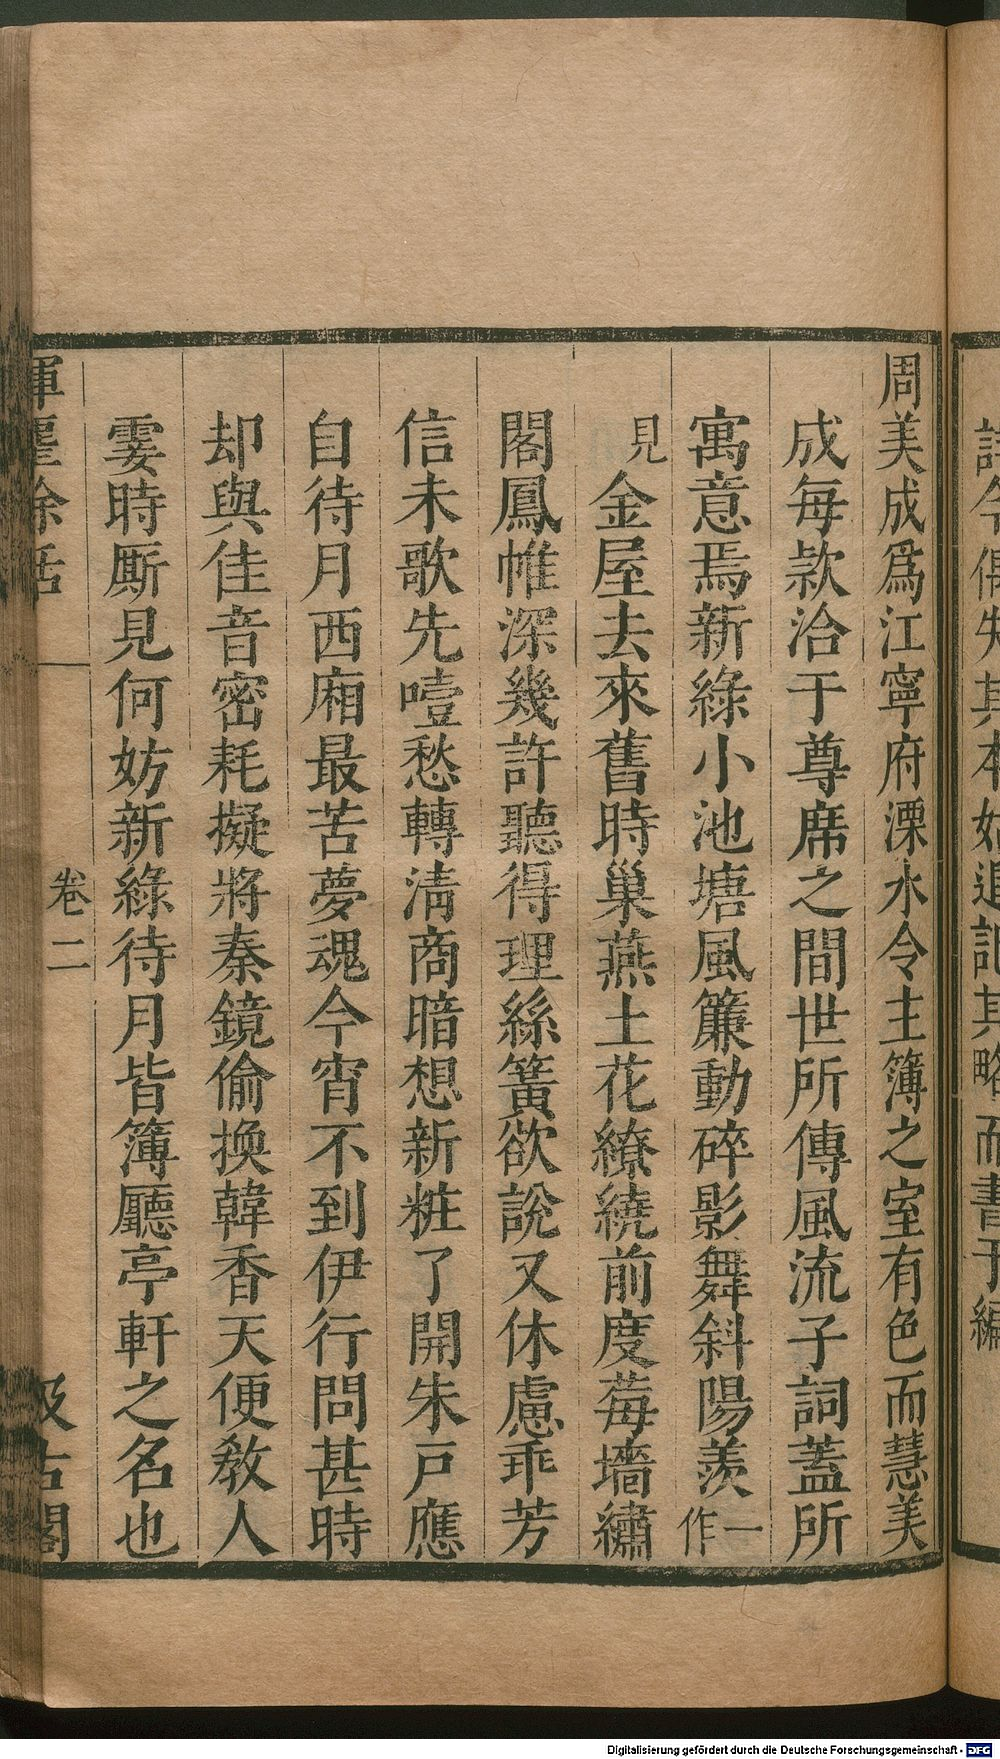 詩今偶失其本始追記其略而書于編
周美成爲江寧府溧水令主簿之室有色而慧美
成每款洽于尊席之間世所傳風流子詞蓋所
寓意焉新綠小池塘風簾動碎影舞斜陽羨一作
見金屋去來舊時巢燕土花繚繞前度莓墻繡
閣鳳帷深幾許聽得理絲簧欲說又休慮乖芳
信未歌先噎愁轉清商暗想新粧了開朱戶應
自待月西廂最苦夢魂今宵不到伊行問甚時
却與佳音密耗擬將秦鏡偷換韓香天便教人
霎時厮見何妨新綠待月皆簿廳亭軒之名也
揮麈餘話
卷二
汲古閣
Digitalisierung gefördert durch die Deutsche Forschungsgemeinschaft - DFG